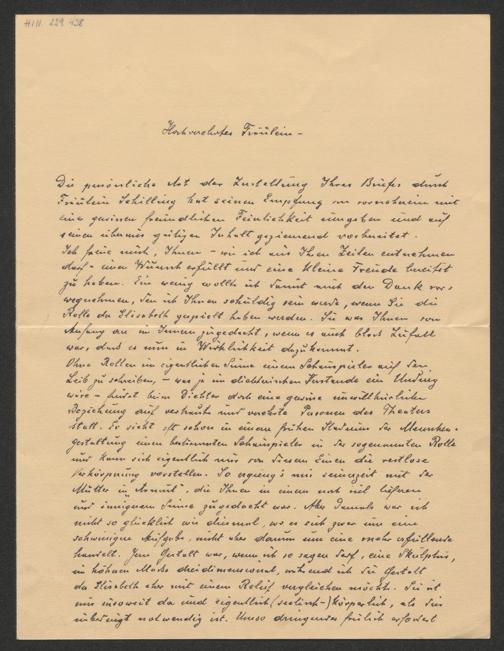 H.I.N. 229.438
Hochverehrtes Fräulein –
Die persönliche Art der Zustellung Ihres Briefes durch
Fräulein Schilling hat seinen Empfang von vornherein mit
einer gewissen freundlichen Feierlichkeit umgeben und auf
seinen überaus gütigen Inhalt geziemend vorbereitet.
Ich freue mich, Ihnen – wie ich aus Ihren Zeilen entnehmen
darf – einen Wunsch erfüllt und eine kleine Freude bereitet
zu haben. Ein wenig wollte ich damit auch den Dank vor-
wegnehmen, den ich Ihnen schuldig sein werde, wenn Sie die
Rolle der Elisabeth gespielt haben werden. Sie war Ihnen von
Anfang an im Innern zugedacht, wenn es auch bloß Zufall
war, daß es nun in Wirklichkeit dazu kommt.
Ohne Rollen im eigentlichen Sinne einem Schauspieler auf den
Leib zu schreiben, – was ja im dichterischen Zustande ein Unding
wäre – besteht beim Dichter doch eine gewisse unwillkürliche
Beziehung auf vertraute und verehrte Personen des Theaters
statt. Er sieht oft schon in einem frühen Stadium der Menschen-
gestaltung einen bestimmten Schauspieler in der sogenannten Rolle
und kann sich eigentlich nur von diesem Einen die restlose
Verkörperung vorstellen. So ergieng's mir seinerzeit mit der
Mutter in „Armut", die Ihnen in einem noch viel tieferen
und innigeren Sinne zugedacht war. Aber damals war ich
nicht so glücklich wie diesmal, wo es sich zwar um eine
schwierige Aufgabe, nicht aber darum um eine mehr erfüllende
handelt. Jene Gestalt war, wenn ich so sagen darf, eine Skulptur,
in hohem Maße dreidimensional, während ich die Gestalt
der Elisabeth eher mit einem Relief vergleichen möchte. Sie ist
nur insoweit da und eigentlich (seelisch-) körperlich, als dies
unbedingt notwendig ist. Umso dringender freilich erfordert